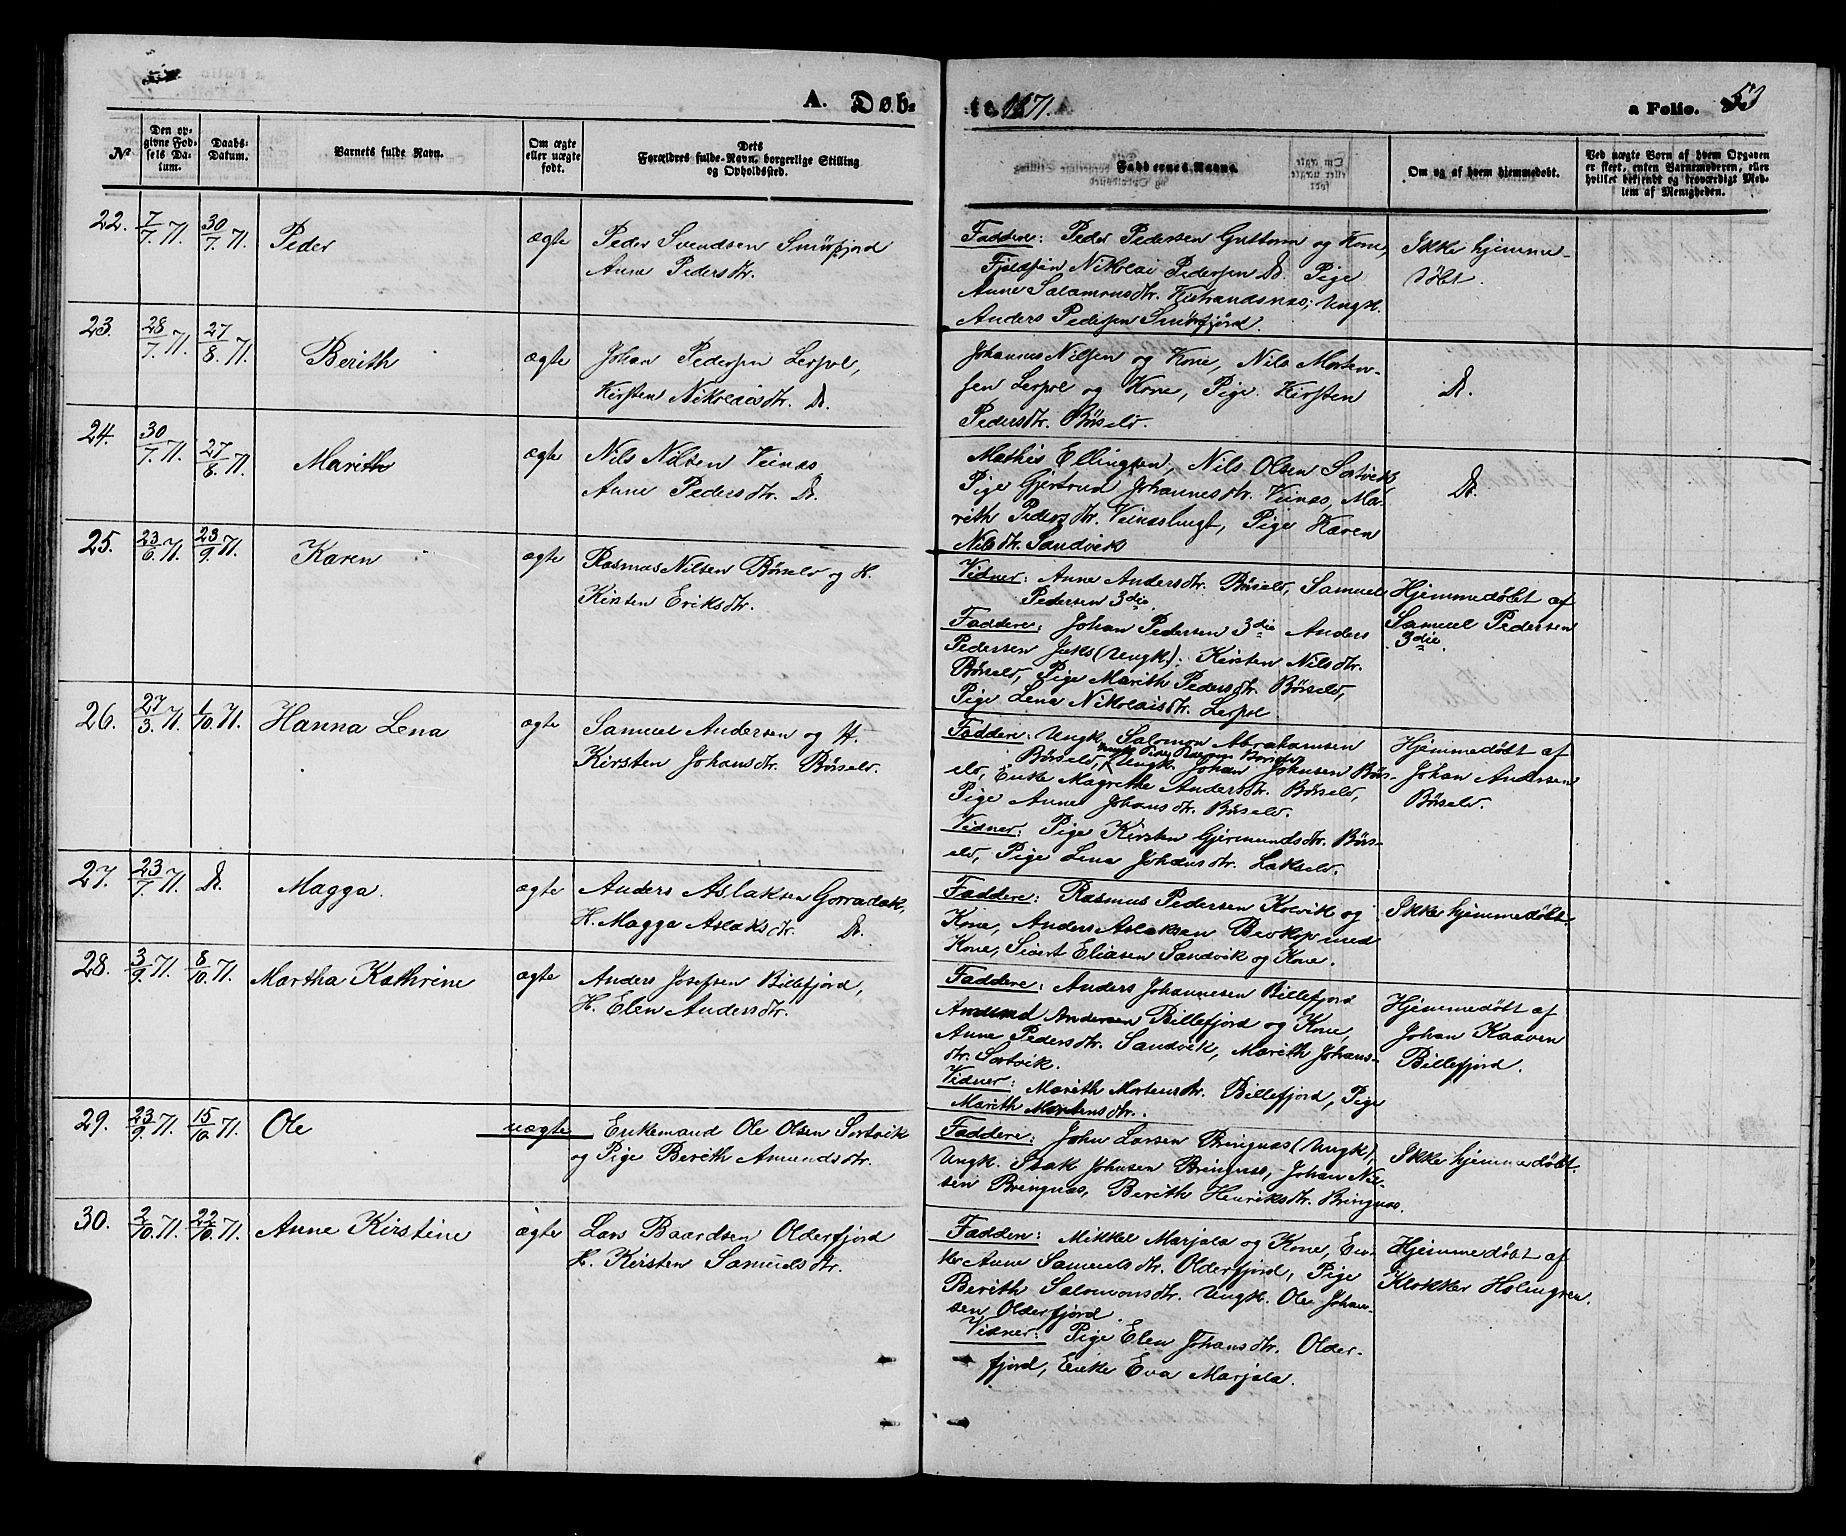 A. Døb-
te 1871.
a Folio. 53
No
Den op-
givne Fød-
sels Da-
tum.
Daabs-
Datum.
Barnets fulde Navn.
Om ægte
eller uægte
født.
Dets
Forældres fulde Navn, borgerlige Stilling
og Opholdssted.
Faddernes Navne.
Om og af hvem hjemmedøbt.
Ved uægte Børn af hvem Opgaven
er skeet, enten Barnemoderen, eller
hvilket bekjendt og troværdigt Med-
lem af Menigheden.
22. 7/7 71. 30/7 71. Peder ægte Peder Svendsen Smörfjord
Anne Pedersdtr.
Faddere: Peder Pedersen Guttorm og Kone,
Nikolai Pedersen Do. Pige
Anne Salamonsdtr. Ungk.
Anders Pedersen Smörfjord.
Ikke hjemme-
döbt.
23. 28/7 71. 27/8 71. Berith ægte Johan Pedersen Lerpol,
Kirsten Nikolaisdtr. Do.
Johannes Nilsen og Kone, Nils Morten-
sen Lerpol og Kone, Pige Kirsten
Pedersdtr. Börselv.
Do.
24. 30/7 71. 27/8 71. Marith ægte Nils Nilsen Veinæs,
Anne Pedersdtr. Do.
Mathis Ellingsen, Nils Olsen Sortvik
Pige Gjertrud Johannesdtr. Veinæs, Ma-
rith Pedersdtr. Veinæsbugt, Pige Karen
Nilsdtr. Sandvik
Do.
25. 23/6 71. 23/9 71. Karen ægte Rasmus Nilsen Börselv og H.
Kirsten Eriksdtr.
Vidner: Anne Andersdtr. Börselv, Samuel
Pedersen 3die.
Faddere: Johan Pedersen 3die Anders
Pedersen Juks (Ungk). Kirsten Nilsdtr.
Börselv, Pige Marith Pedersdtr. Börselv,
Pige Lena Nikolaisdtr. Lerpol
Hjemmedöbt af
Samuel Pedersen
3die.
26. 27/3 71. 1/10 71. Hanna Lena ægte Samuel Andersen og H.
Kirsten Johansdtr. Börselv.
Faddere: Ungk. Salomon Abrahamsen
Börselv, Ungk. Johan Johnsen Börs-
elv, Enke Magrethe Andersdtr. Börselv,
Pige Anne Johansdtr. Börselv.
Vidner: Pige Kirsten Gjermundsdtr. Börs-
elv, Pige Lena Johansdtr. Lakselv.
Hjemmedöbt af
Johan Andersen
Börselv.
27. 23/7 71. Do. Magga. ægte Anders Aslaksen
H. Magga Aslaksdtr. Do.
Faddere: Rasmus Pedersen Kolvik og
Kone, Anders Aslaksen Bevkop med
Kone, Sivert Eliasen Sandvik og Kone.
Ikke hjemmedöbt.
28. 3/9 71. 8/10 71. Martha Kathrine ægte Anders Josefsen Billefjord,
H. Elen Andersdtr.
Faddere: Anders Johannesen Billefjord
Amund Andersen Billefjord og Kone,
Anne Pedersdtr. Sandvik, Marith Johans-
dtr. Sortvik.
Vidner: Marith Mortensdtr. Billefjord, Pige
Marith Mortensdtr.
Hjemmedöbt af
Johan Kaaven
Billefjord.
29. 23/9 71. 15/10 71. Ole uægte Enkemand Ole Olsen Sortvik
og Pige Berith Amundsdtr.
Faddere: John Larsen Bringnæs (Ungk),
Ungk. Isak Johnsen Bringnæs, Johan Nil-
sen Bringnæs, Berith Henriksdtr. Bringnæs.
Ikke hjemmedöbt.
30. 2/10 71. 22/10 71. Anne Kirstine ægte Lars Baardsen Olderfjord
H. Kirsten Samuelsdtr.
Faddere: Mikkel Marjala og Kone, En-
ke Anne Samuelsdtr. Olderfjord, Pige
Berith Salomonsdtr. Ungk. Ole Johan-
sen Olderfjord.
Vidner: Pige Elen Johansdtr. Older-
fjord, Enke Eva Marjala.
Hjemmedöbt af
Klokker Holmgren.